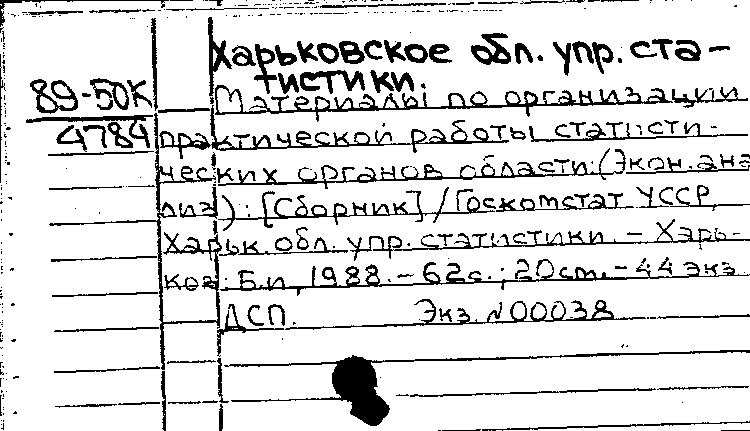 Харьковское обл. упр. ста-
тистики.
89-50К
4784
Материалы по организации
практической работы статисти-
ческих органов области: (Экон. ана
лиз) : [Сборник] / Госкомстат УССР,
Харьк. обл. упр. статистики. - Харь-
ков : Б.и, 1988. - 62с. ; 20см. - 44 экз
ДСП. Экз. №00038